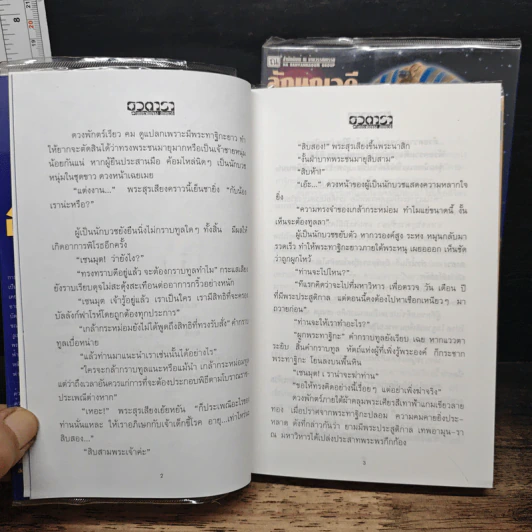 อวตาร
ดวงพักตร์เรียว คม ดูแปลกเพราะมีพระทาฐิกะยาว ทำ
ให้ยากจะตัดสินได้ว่าทรงพระชนมายุมากหรือเป็นเจ้าชายหนุ่ม
น้อยกันแน่ หากผู้ยืนประสานมือ ค้อมไหล่นิดๆ เป็นนักบวช
หนุ่มในชุดขาว ดวงหน้าเฉยเมย
"แต่งงาน..." พระสุรเสียงคราวนี้เย็นชายิ่ง "กับน้อง
เราน่ะหรือ?"
ผู้เป็นนักบวชยังยืนนิ่งไม่กราบทูลใดๆ ทั้งสิ้น มีผลให้
เกิดอาการพิโรธอีกครั้ง
"เซนมุต! ว่ายังไง?"
"ทรงทราบดีอยู่แล้ว จะต้องกราบทูลทำไม" กระแสเสียง
ยังราบเรียบดุจไม่สะดุ้งสะเทือนต่ออาการกริ้วอย่างหนัก
"เซนมุต เจ้ารู้อยู่แล้ว เราเป็นใคร เรามีสิทธิที่จะครอง
บัลลังก์ฟาโรห์โดยถูกต้องทุกประการ"
"เกล้ากระหม่อมยังไม่ได้พูดถึงสิทธิที่ทรงรับสั่ง" คำกราบ
ทูลเบื่อหน่าย
"แล้วท่านมาแนะนำเราเช่นนั้นได้อย่างไร"
"ใครจะกล้ากราบทูลแนะหรือแม้นำ เกล้ากระหม่อมทูล
แต่ว่าถึงเวลาอันควรแก่การที่จะต้องประกอบพิธีตามโบราณราช
ประเพณีต่างหาก"
"เหอะ!" พระสุรเสียงเย้ยหยัน "ก็ประเพณีอะไรของ
ท่านนั่นแหละ ให้เราอภิเษกกับเจ้าเด็กขี้โรค อายุ...เท่าไหร่นะ
สิบสอง..."
"สิบสามพระเจ้าค่ะ"
"สิบสอง!" พระสุรเสียงขึ้นพระนาสิก
"งั้นฝ่าบาทพระชนมายุสิบสาม"
"สิบห้า!"
"เอ๊ะ..." ดวงหน้าของผู้เป็นนักบวชแสดงความหลากใจ
ยิ่ง
"ความทรงจำของเกล้ากระหม่อม ทำไมแย่ขนาดนี้ งั้น
เห็นจะต้องทูลลา"
ผู้เป็นนักบวชขยับตัว หากวรองค์สูง ระหง หมุนกลับมา
รวดเร็ว ทำให้พระทาฐิกะยาวภายใต้พระหนุ เผยอออก เห็นชัด
ว่าถูกผูกไหว้
"ท่านจะไปไหน?"
"ที่แรกคิดว่าจะไปที่มหาวิหาร เพื่อตรวจ วัน เดือน ปี
ที่มีพระประสูติกาล แต่ตอนนี้คงต้องไปหาเซียกเหนียวๆ มา
ถวายก่อน"
"ท่านจะให้เราทำอะไร?"
"ผูกพระทาฐิกะ" คำกราบทูลยังเรียบ เฉย หากแววตา
ระยับ สิ้นคำกราบทูล หัตถ์แห่งผู้ที่เพิ่งรู้พระองค์ ก็กระชาก
พระทาฐิกะ โยนลงบนพื้นหิน
"เซนมุต! เราน่าจะฆ่าท่าน"
"ขอให้ทรงคิดอย่างนี้เรื่อยๆ แต่อย่าเพิ่งฆ่าจริง"
ดวงพักตร์ภายใต้ผ้าคลุมพระเศียรสีเทาฟ้าแกมเขียวลาย
ทอง เมื่อปราศจากพระทาฐิกะปลอม ความคมคายยิ่งประ-
หลาด ดังที่กล่าวกันว่า ยามมีพระประสูติกาล เทพอามุน-รา
ณ มหาวิหารได้เปล่งประสาทพระพรกึกก้อง